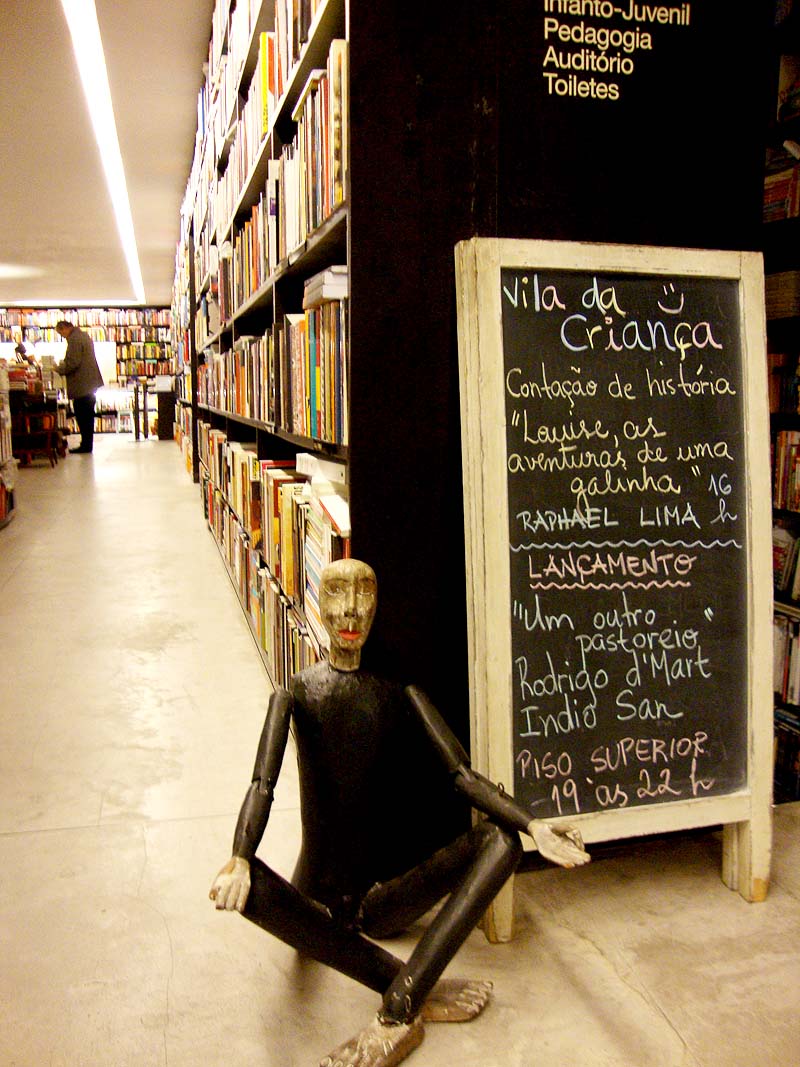 Infanto-Juvenil
Pedagogia
Auditório
Toiletes
Vila da
Criança
Contação de história
"Louise, as
aventuras de uma
galinha" 16
RAPHAEL LIMA h
LANÇAMENTO
"Um outro
pastoreio"
Rodrigo d'Mart
Indio San
PISO SUPERIOR
-19 às 22 h